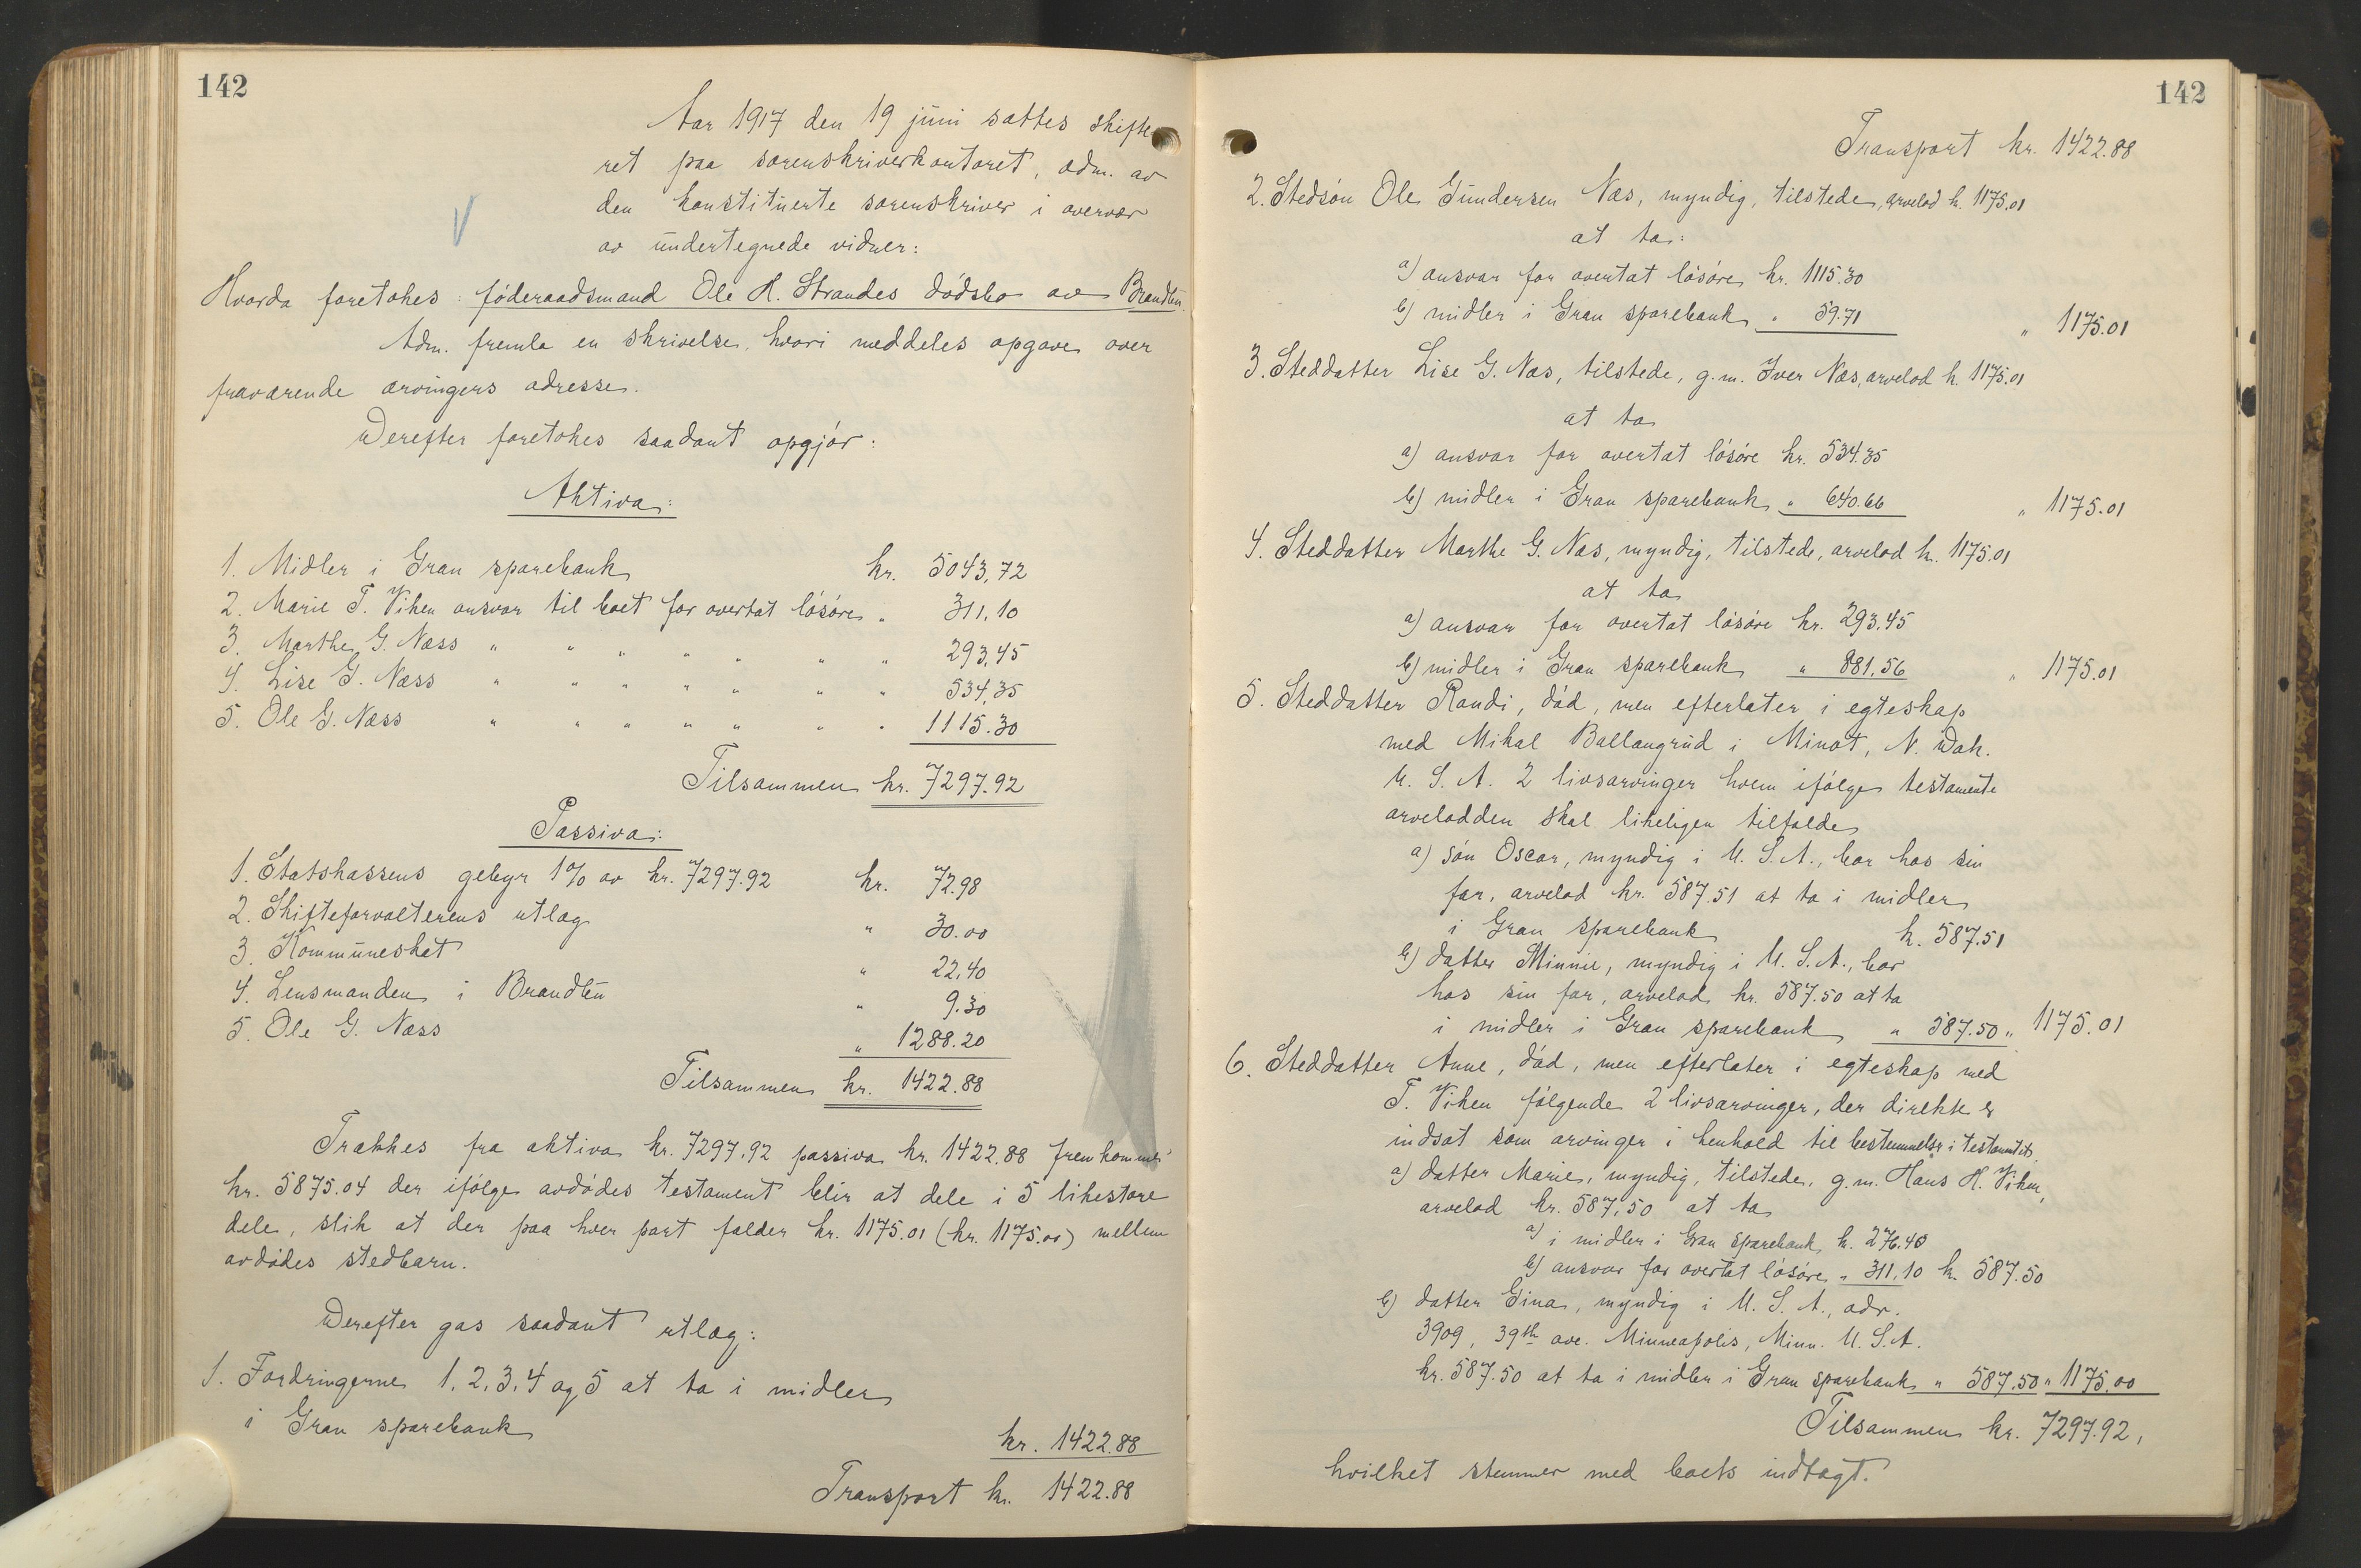 142
Aar 1917 den 19 juni sattes skifte-
ret paa sorenskriverkontoret, adm. av
den konstituerte sorenskriver i overvær
av undertegnede vidner:
Hvorda foretokes: føderaadsmand Ole H. Strandes dødsbo av Brandbu.
Adm. fremla en skrivelse, hvori meddeles opgave over
fraværende arvingers adresse.
Derefter foretokes saadant opgjør:
Aktiva:
1. Midler i Gran sparebank hr. 5043,72
2. Marie T. Viken ansvar til boet for overtat løsøre " 311,10
3. Marthe G. Næss " " " " " " " 293,45
4. Lise G. Næss " " " " " " " 534,35
5. Ole G. Næss " " " " " " " 1115.30
Tilsammen kr. 7297.92
Passiva:
1. Statskassens gebyr 1% av kr. 7297.92 kr. 72.98
2. Skifteforvalterens utlæg " 30.00
3. Kommuneskat " 22,40
4. Lensmanden i Brandbu " 9.30
5. Ole G. Næss " 1288.20
Tilsammen kr. 1422.88
Trækkes fra aktiva kr. 7297,92 passiva kr. 1422,88 fremkommer
kr. 5875.04 der ifølge avdødes testament blir at dele i 5 likestore
dele, slik at der paa hver part falder kr. 1175.01 (kr. 1175.00) mellem
avdødes stedbarn.
Derefter gas saadant utlæg:
1. Fordringerne 1, 2, 3, 4 og 5 at ta i midler
i Gran sparebank kr. 1422.88
Transport kr. 1422.88
142
Transport kr. 1422.88
2. Stedsøn Ole Gundersen Næs, myndig, tilstede, arvelod k. 1175.01
at ta:
a) ansvar for overtat løsøre kr. 1115.30
b) midler i Gran sparebank " 59.71 " 1175.01
3. Steddatter Lise G. Næs, tilstede, g.m. Iver Næs, arvelod k. 1175.01
at ta
a) ansvar for overtat løsøre kr. 534.35
b) midler i Gran sparebank " 640.66 " 1175.01
4. Steddatter Marthe G. Næs, myndig, tilstede, arvelod k. 1175.01
at ta
a) ansvar for overtat løsøre kr. 293.45
b) midler i Gran sparebank " 881.56 " 1175.01
5. Steddatter Randi, død, men efterlater i egteskap
med Mikal Ballangrud i Minot, N. Dak.
U. S. A. 2 livsarvinger hvem ifølge testamente
arvelodden skal likeligen tilfalde
a) søn Oscar, myndig i U. S. A., bor hos sin
far, arvelod kr. 587.51 at ta i midler
i Gran sparebank k. 587.51
b) datter Minnie, myndig i U. S. A., bor
hos sin far, arvelod kr. 587.50 at ta
i midler i Gran sparebank " 587.50 " 1175.01
6. Steddatter Anne, død, men efterlater i egteskap med
T. Viken følgende 2 livsarvinger, der direkte er
indsat som arvinger i henhold til bestemmelse i testamentet
a) datter Marie, myndig, tilstede, g.m. Hans H. Viken,
arvelod kr. 587,50 at ta
a) i midler i Gran sparebank k. 276.40
b) ansvar for overtat løsøre " 311,10 k. 587.50
b) datter Gina, myndig i U. S. A., adr.
3909, 39th ave. Minneapolis, Minn. U. S. A.
kr. 587.50 at ta i midler i Gran sparebank " 587.50 " 1175.00
Tilsammen kr. 7297.92,
hvilket stemmer med boets indtægt.